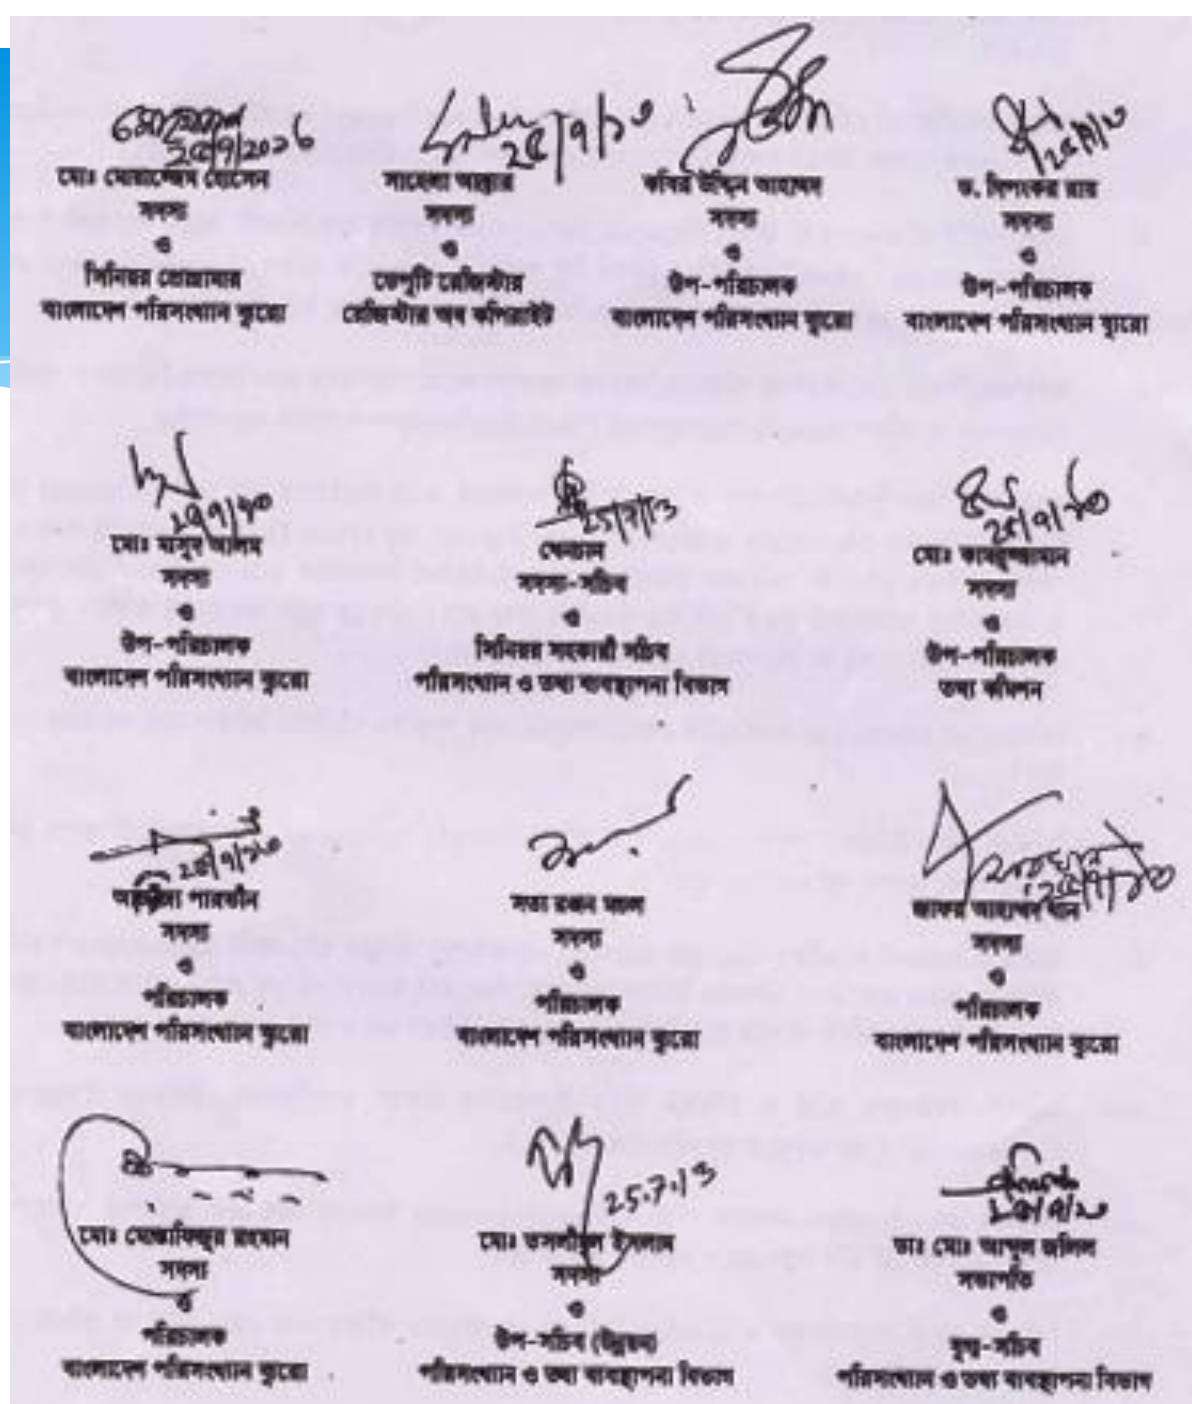 ২৫/৭/২০১৩
মোঃ মোয়াজ্জেম হোসেন
সদস্য
ও
সিনিয়র প্রোগ্রামার
বাংলাদেশ পরিসংখ্যান ব্যুরো
২৫/৭/১৩
সাহেলা আক্তার
সদস্য
ও
ডেপুটি রেজিস্টার
রেজিস্টার অব কপিরাইট
কবির উদ্দিন আহাম্মদ
সদস্য
ও
উপ-পরিচালক
বাংলাদেশ পরিসংখ্যান ব্যুরো
২৫/৭/১৩
ড. দিপংকর রায়
সদস্য
ও
উপ-পরিচালক
বাংলাদেশ পরিসংখ্যান ব্যুরো
২৫/৭/১৩
মোঃ মাসুদ আলম
সদস্য
ও
উপ-পরিচালক
বাংলাদেশ পরিসংখ্যান ব্যুরো
25/7/13
সদস্য-সচিব
ও
সিনিয়র সহকারী সচিব
পরিসংখ্যান ও তথ্য ব্যবস্থাপনা বিভাগ
২৫/৭/১৩
মোঃ কামরুজ্জামান
সদস্য
ও
উপ-পরিচালক
তথ্য কমিশন
২৫/৭/১৩
পারভীন
সদস্য
ও
পরিচালক
বাংলাদেশ পরিসংখ্যান ব্যুরো
সত্য রঞ্জন মন্ডল
সদস্য
ও
পরিচালক
বাংলাদেশ পরিসংখ্যান ব্যুরো
২৫/৭/১৩
জাফর আহাম্মদ খান
সদস্য
ও
পরিচালক
বাংলাদেশ পরিসংখ্যান ব্যুরো
মোঃ মোস্তাফিজুর রহমান
সদস্য
ও
পরিচালক
বাংলাদেশ পরিসংখ্যান ব্যুরো
25.7.13
মোঃ তসলীমুল ইসলাম
সদস্য
ও
উপ-সচিব (উন্নয়ন)
পরিসংখ্যান ও তথ্য ব্যবস্থাপনা বিভাগ
ডাঃ মোঃ আব্দুল জলিল
সভাপতি
ও
যুগ্ম-সচিব
পরিসংখ্যান ও তথ্য ব্যবস্থাপনা বিভাগ